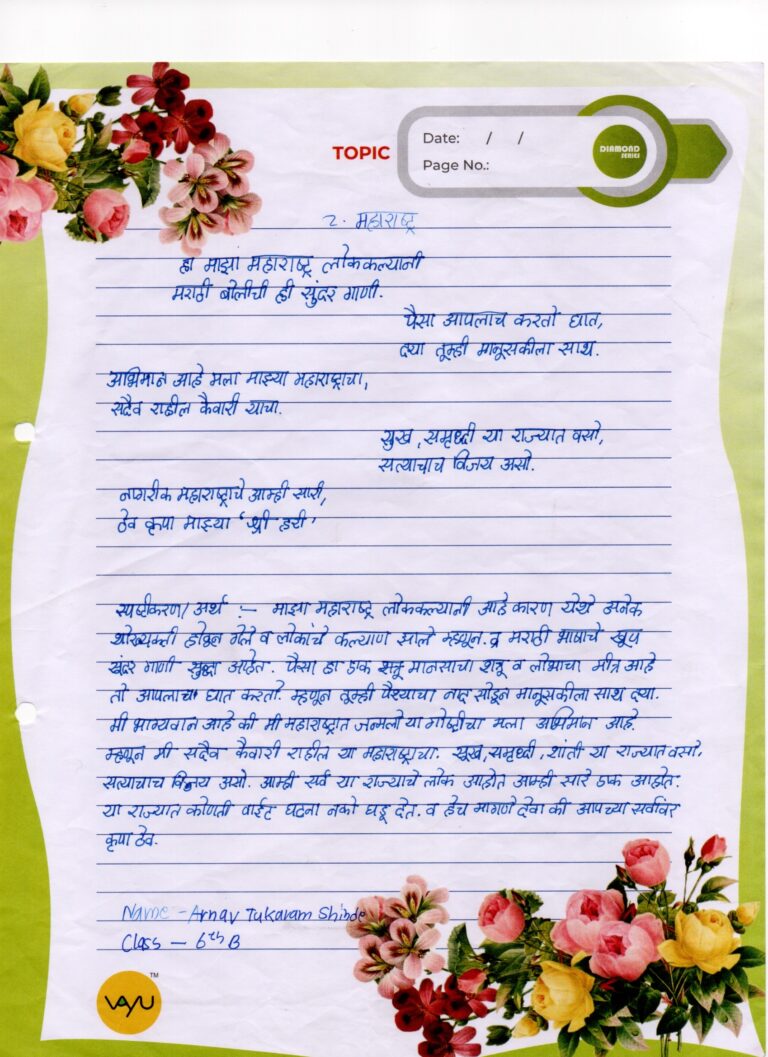 TOPIC
Date: / /
Page No.:
DIAMOND
SERIES
2. महाराष्ट्र
हा माझा महाराष्ट्र लोककल्यानी
मराठी बोलीची ही सुंदर गाणी.
पैसा आपलाच करतो घात,
द्या तूम्ही मानूसकीला साथ.
अभिमान आहे मला माझ्या महाराष्ट्राचा,
सदैव राहील कैवारी याचा.
सुख, समृध्दी या राज्यात वसो,
सत्याचाच विजय असो.
नागरीक महाराष्ट्राचे आम्ही सारी,
ठेव कृपा माझ्या 'श्री हरी'
स्पष्टीकरण/ अर्थ :- माझा महाराष्ट्र लोककल्यानी आहे कारण येथे अनेक
थोरव्यक्ती होवून गेले व लोकांचे कल्याण झाले म्हणून. व मराठी भाषाचे खूप
सुंदर गाणी सुद्धा आहेत. पैसा हा एक मानसाचा शत्रू व लोभाचा मीत्र आहे
तो आपलाच घात करतो. म्हणून तूम्ही पैश्याचा नाद सोडून मानूसकीला साथ द्या.
मी भाग्यवान आहे की मी महाराष्ट्रात जन्मलो या गोष्टीचा मला अभिमान आहे.
म्हणून मी सदैव कैवारी राहील या महाराष्ट्राचा. सूख, समृध्दी, शांती या राज्यात वसो,
सत्याचाच विजय असो. आम्ही सर्व या राज्याचे लोक आहोत आम्ही सारे एक आहोत.
या राज्यात कोणती वाईट घटना नको घडू देत. व हेच मागणे देवा की आपच्या सर्वांवर
कृपा ठेव.
Name - Arnav Tukaram Shinde
Class - 6th B
VAYU
TM